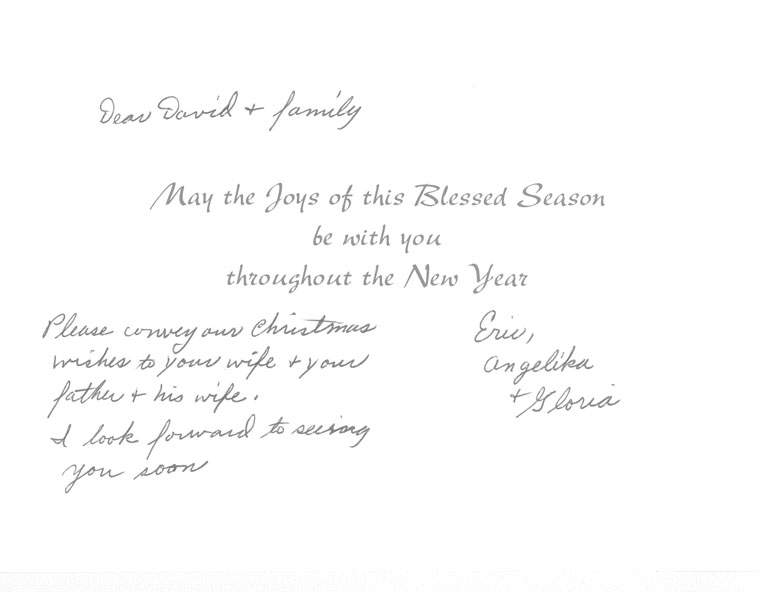 Dear David + family
May the Joys of this Blessed Season
be with you
throughout the New Year
Please convey our Christmas
wishes to your wife + your
father + his wife.
I look forward to seeing
you soon
Eric,
Angelika
+ Gloria